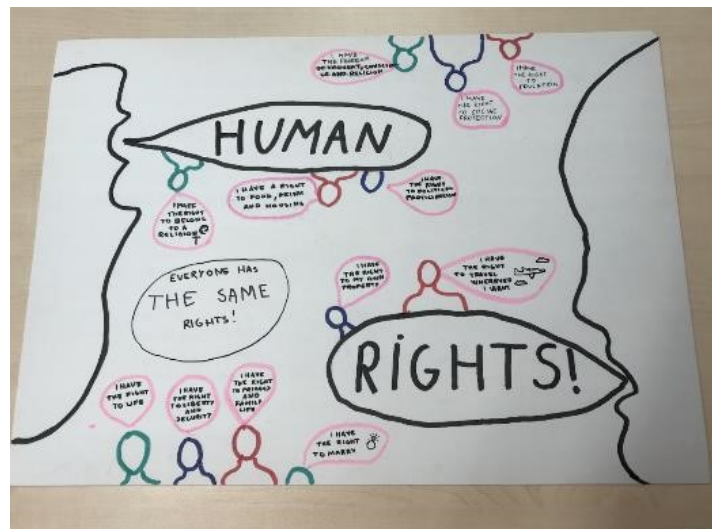 I HAVE
THE FREEDOM
OF THOUGHT, CONSCIEN
CE AND RELIGION
I HAVE
THE RIGHT
TO
EDUCATION
I HAVE
THE RIGHT
TO SOCIAL
PROTECTION
HUMAN
I HAVE
THE RIGHT
TO BELONG
TO A
RELIGION
I HAVE A RIGHT
TO FOOD, DRINK
AND HOUSING
I HAVE
THE RIGHT
TO POLITICAL
PARTICIPATION
EVERYONE HAS
THE SAME
RIGHTS!
I HAVE
THE RIGHT
TO MY OWN
PROPERTY
I HAVE
THE RIGHT
TO TRAVEL
WHEREVER
I WANT
RIGHTS!
I HAVE
THE RIGHT
TO LIFE
I HAVE
THE RIGHT
TO LIBERTY
AND
SECURITY
I HAVE
THE RIGHT
TO PRIVATE
AND
FAMILY
LIFE
I HAVE
THE RIGHT
TO MARRY